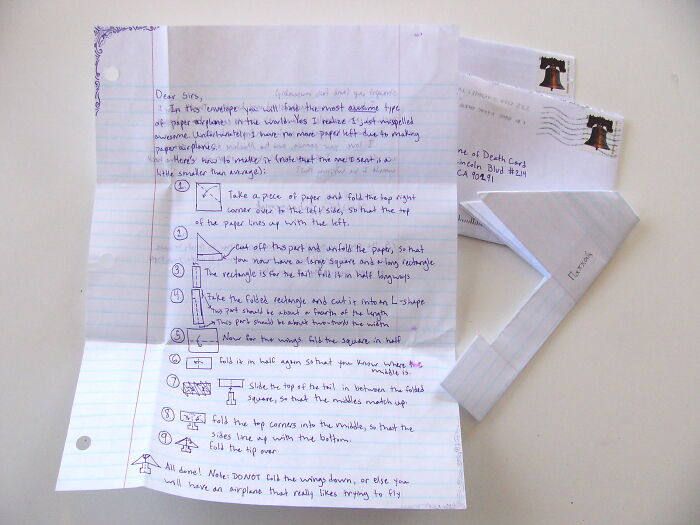 Dear Sirs,
In this envelope you will find the most awsome type
of paper airplanes in the world. Yes I realize I just mispelled
awesome. Unfortunately I have no more paper left due to making
paper airplanes.
Here's how to make it (note that the one I sent is a
little smaller than average):
1. Take a piece of paper and fold the top right
corner over to the left side, so that the top
of the paper lines up with the left.
2. Cut off this part and unfold the paper, so that
you now have a large square and a long rectangle
3. The rectangle is for the tail: fold it in half longways.
4. Take the folded rectangle and cut it into an L-shape
This part should be about a fourth of the length
This part should be about two-thirds the width
5. Now for the wings: fold the square in half
6. fold it in half again so that you know where the
middle is.
7. Slide the top of the tail in between the folded
square, so that the middles match up.
8. fold the top corners into the middle, so that the
sides line up with the bottom.
9. fold the tip over
All done! Note: DO NOT fold the wings down, or else you
will have an airplane that really likes trying to fly
ne of Death Card
incoln Blvd #214
CA 90291